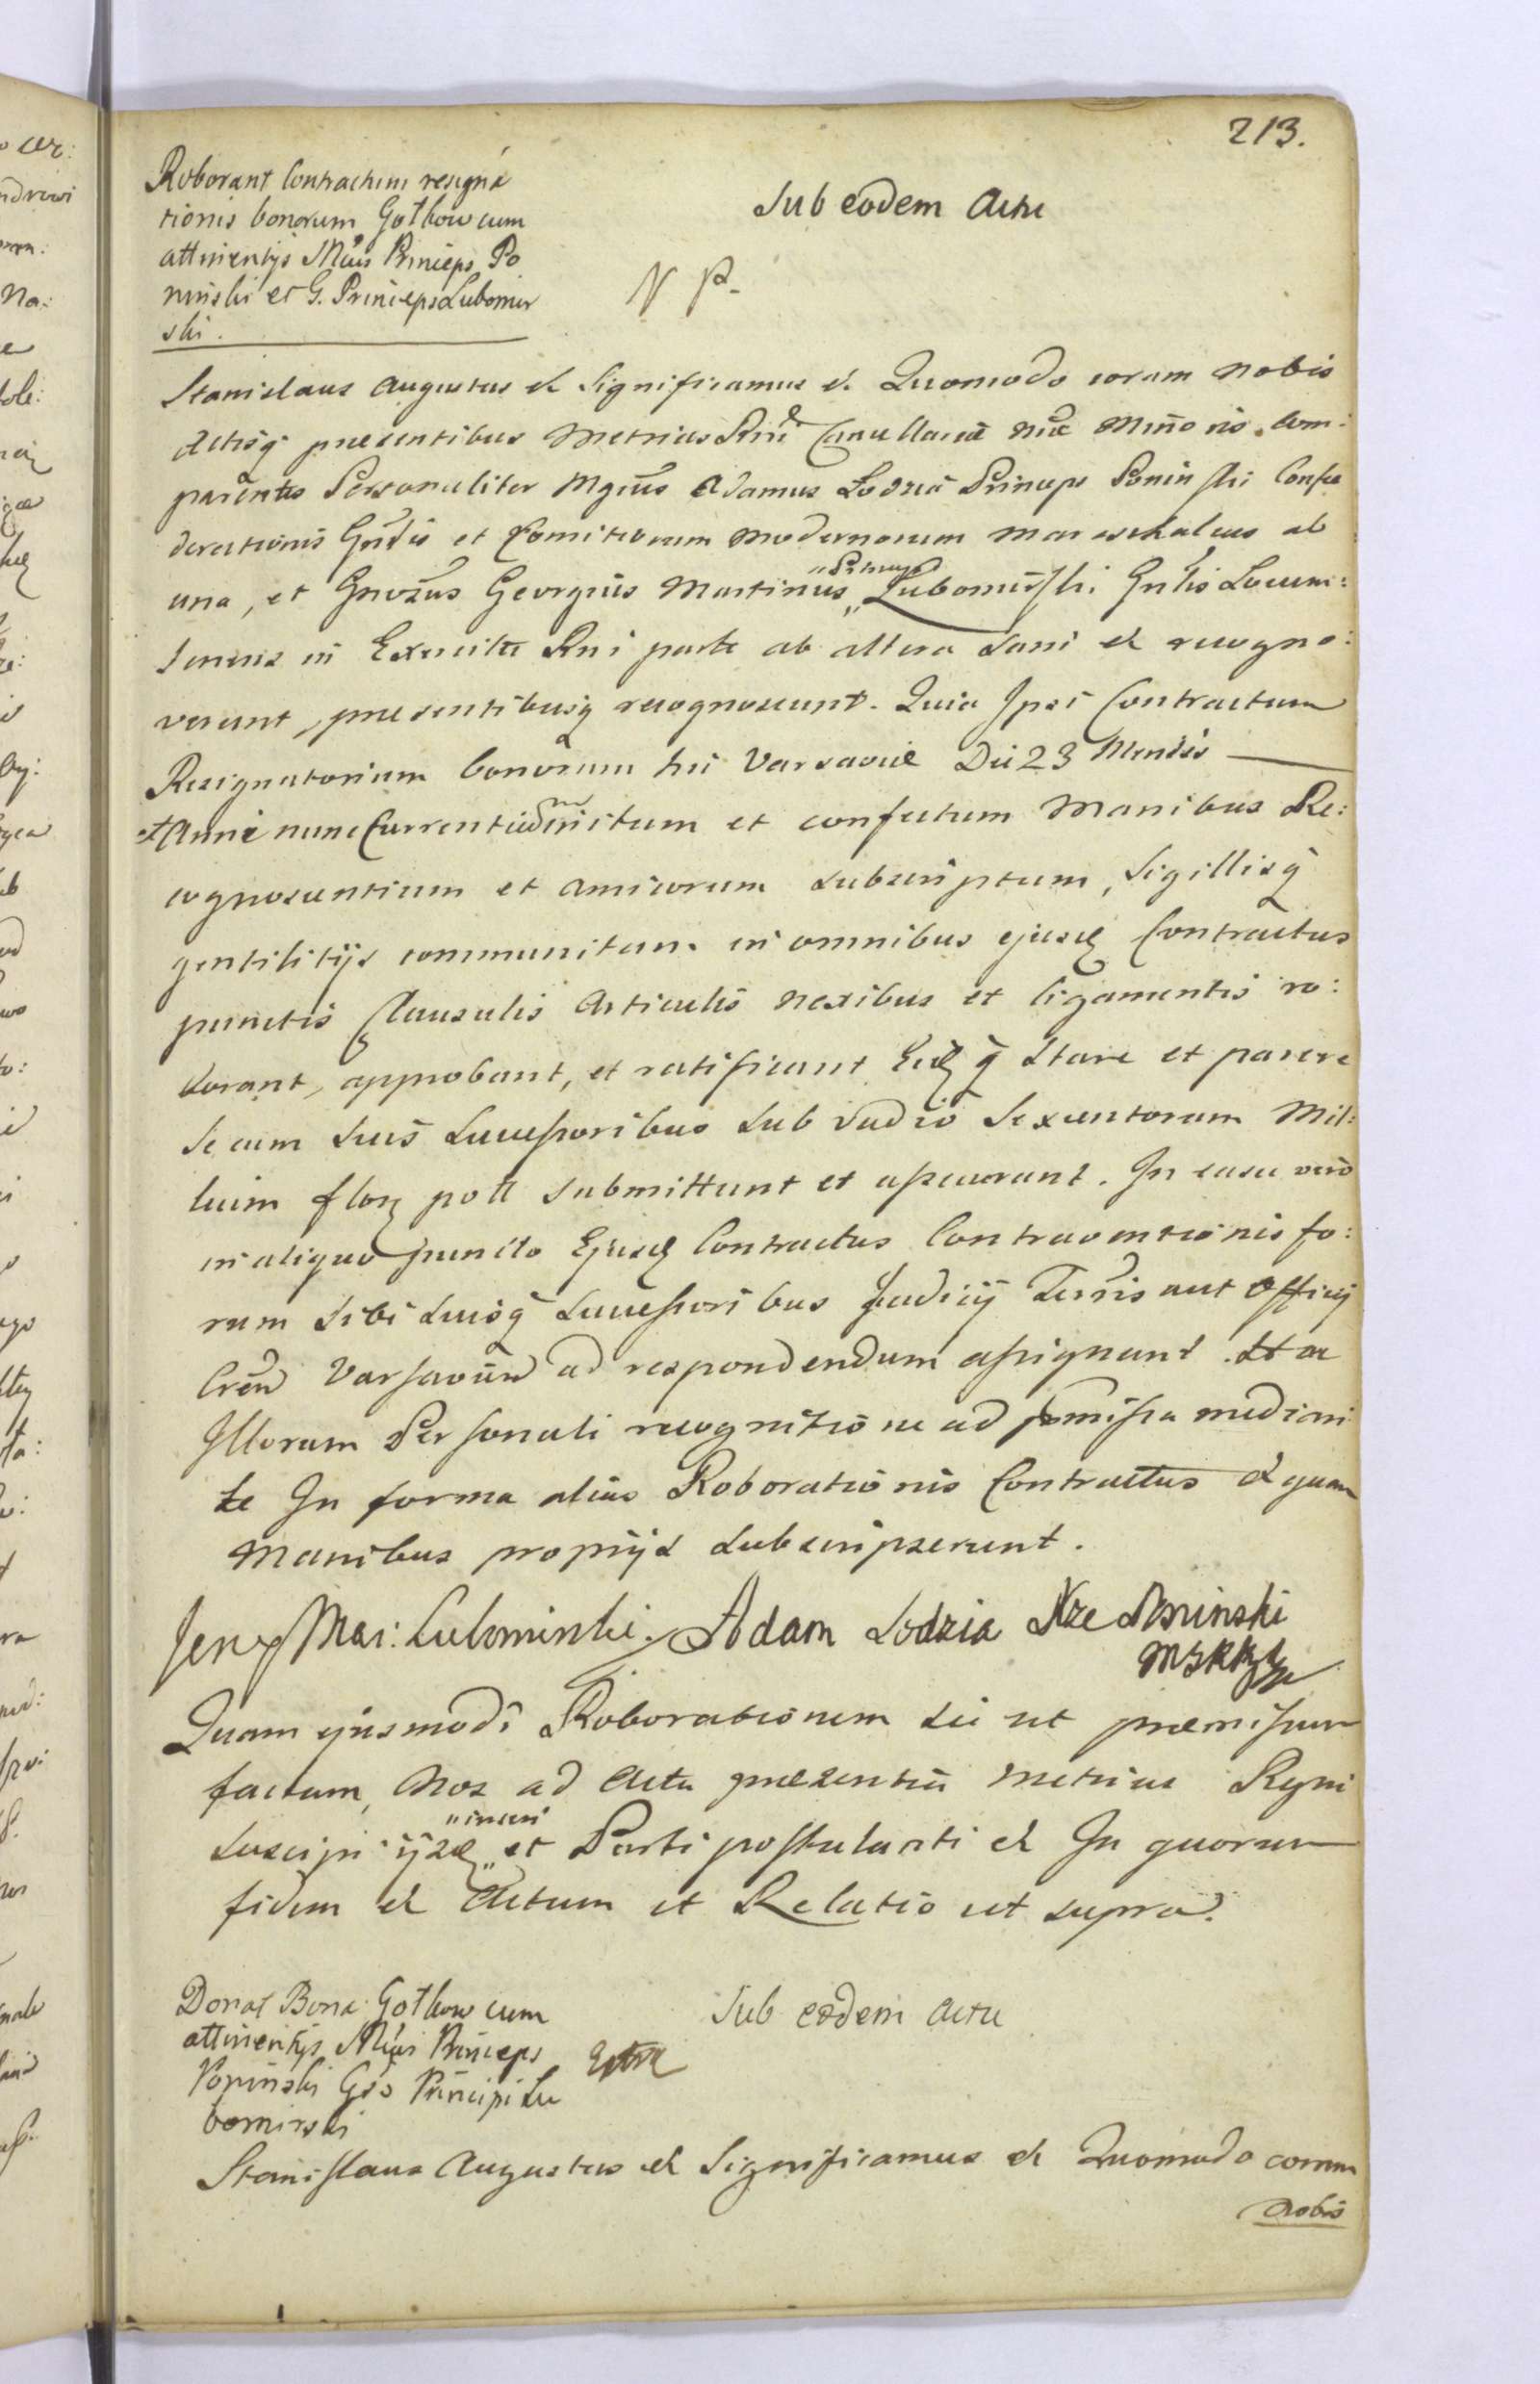 213.
Roborant Contractum resigna
tionis bonorum Gotkow cum
attinentijs Mcus Princeps Po
ninski et G. Princeps Lubomir
ski.
Sub eodem Actu
N P.
Stanislaus Augustus et Significamus et Quomodo coram Nobis
Actisq presentibus Metrices Rni Cancellariae Mino ris Com:
parentes Personaliter Mgcus Adamus Lodzia Princeps Poninski Confae
derationis Gnlis et Comitiorum modernorum Mareschalcus ab
una, et Gnrosus Georgius Martinus „Princeps„ Lubomirski Gnlis Locum:
tenens in Exercitu Rni parte ab altera Sani et recogno:
verunt, presentibusq recognoscunt. Quia Ipsi Contractum
Resignatorium bonorum hic Varsaviae Die 23 Mensis —
et Anni nunc Currentis initum et confectum Manibus Re:
cognoscentium et Amicorum subscriptum, Sigillisq
gentilitijs communitum in omnibus ejusd Contractus
punctis Clausulis Articulis nexibus et ligamentis ro:
borant, approbant, et ratificant Eidq Stare et parere
se cum suis Successoribus sub vadio Sexcentorum Mil:
lium flor poll submittunt et assecurant. In casu vero
in aliquo puncto Ejusd Contractus Contraventionis fo:
rum sibi suisq Successoribus Judicij Terris aut Officij
Cren Varsavien ad respondendum assignant. Et
Illorum Personali recognitione ad pmissa median
te In forma alias Roborationis Contractus et quam
Manibus proprijs subscripserunt.
Jerzy Mar: Lubomirski. Adam Lodzia Xze Poninski
MSKK
Quam ejusmodi Roborationem sic ut praemissum
factam, Nos ad Acta presentia Metrices Regni
suscipi ijsd „inseri„ et Parti postulanti et In quorum
fidem et Actum et Relatio ut supra.
Donat Bona Gotkow cum
attinentijs Mcus Princeps
Poninski Gso Principi Lu
bomirski
Sub eodem Actu
Extra
Stanislaus Augustus et Significamus et Quomodo coram
Nobis